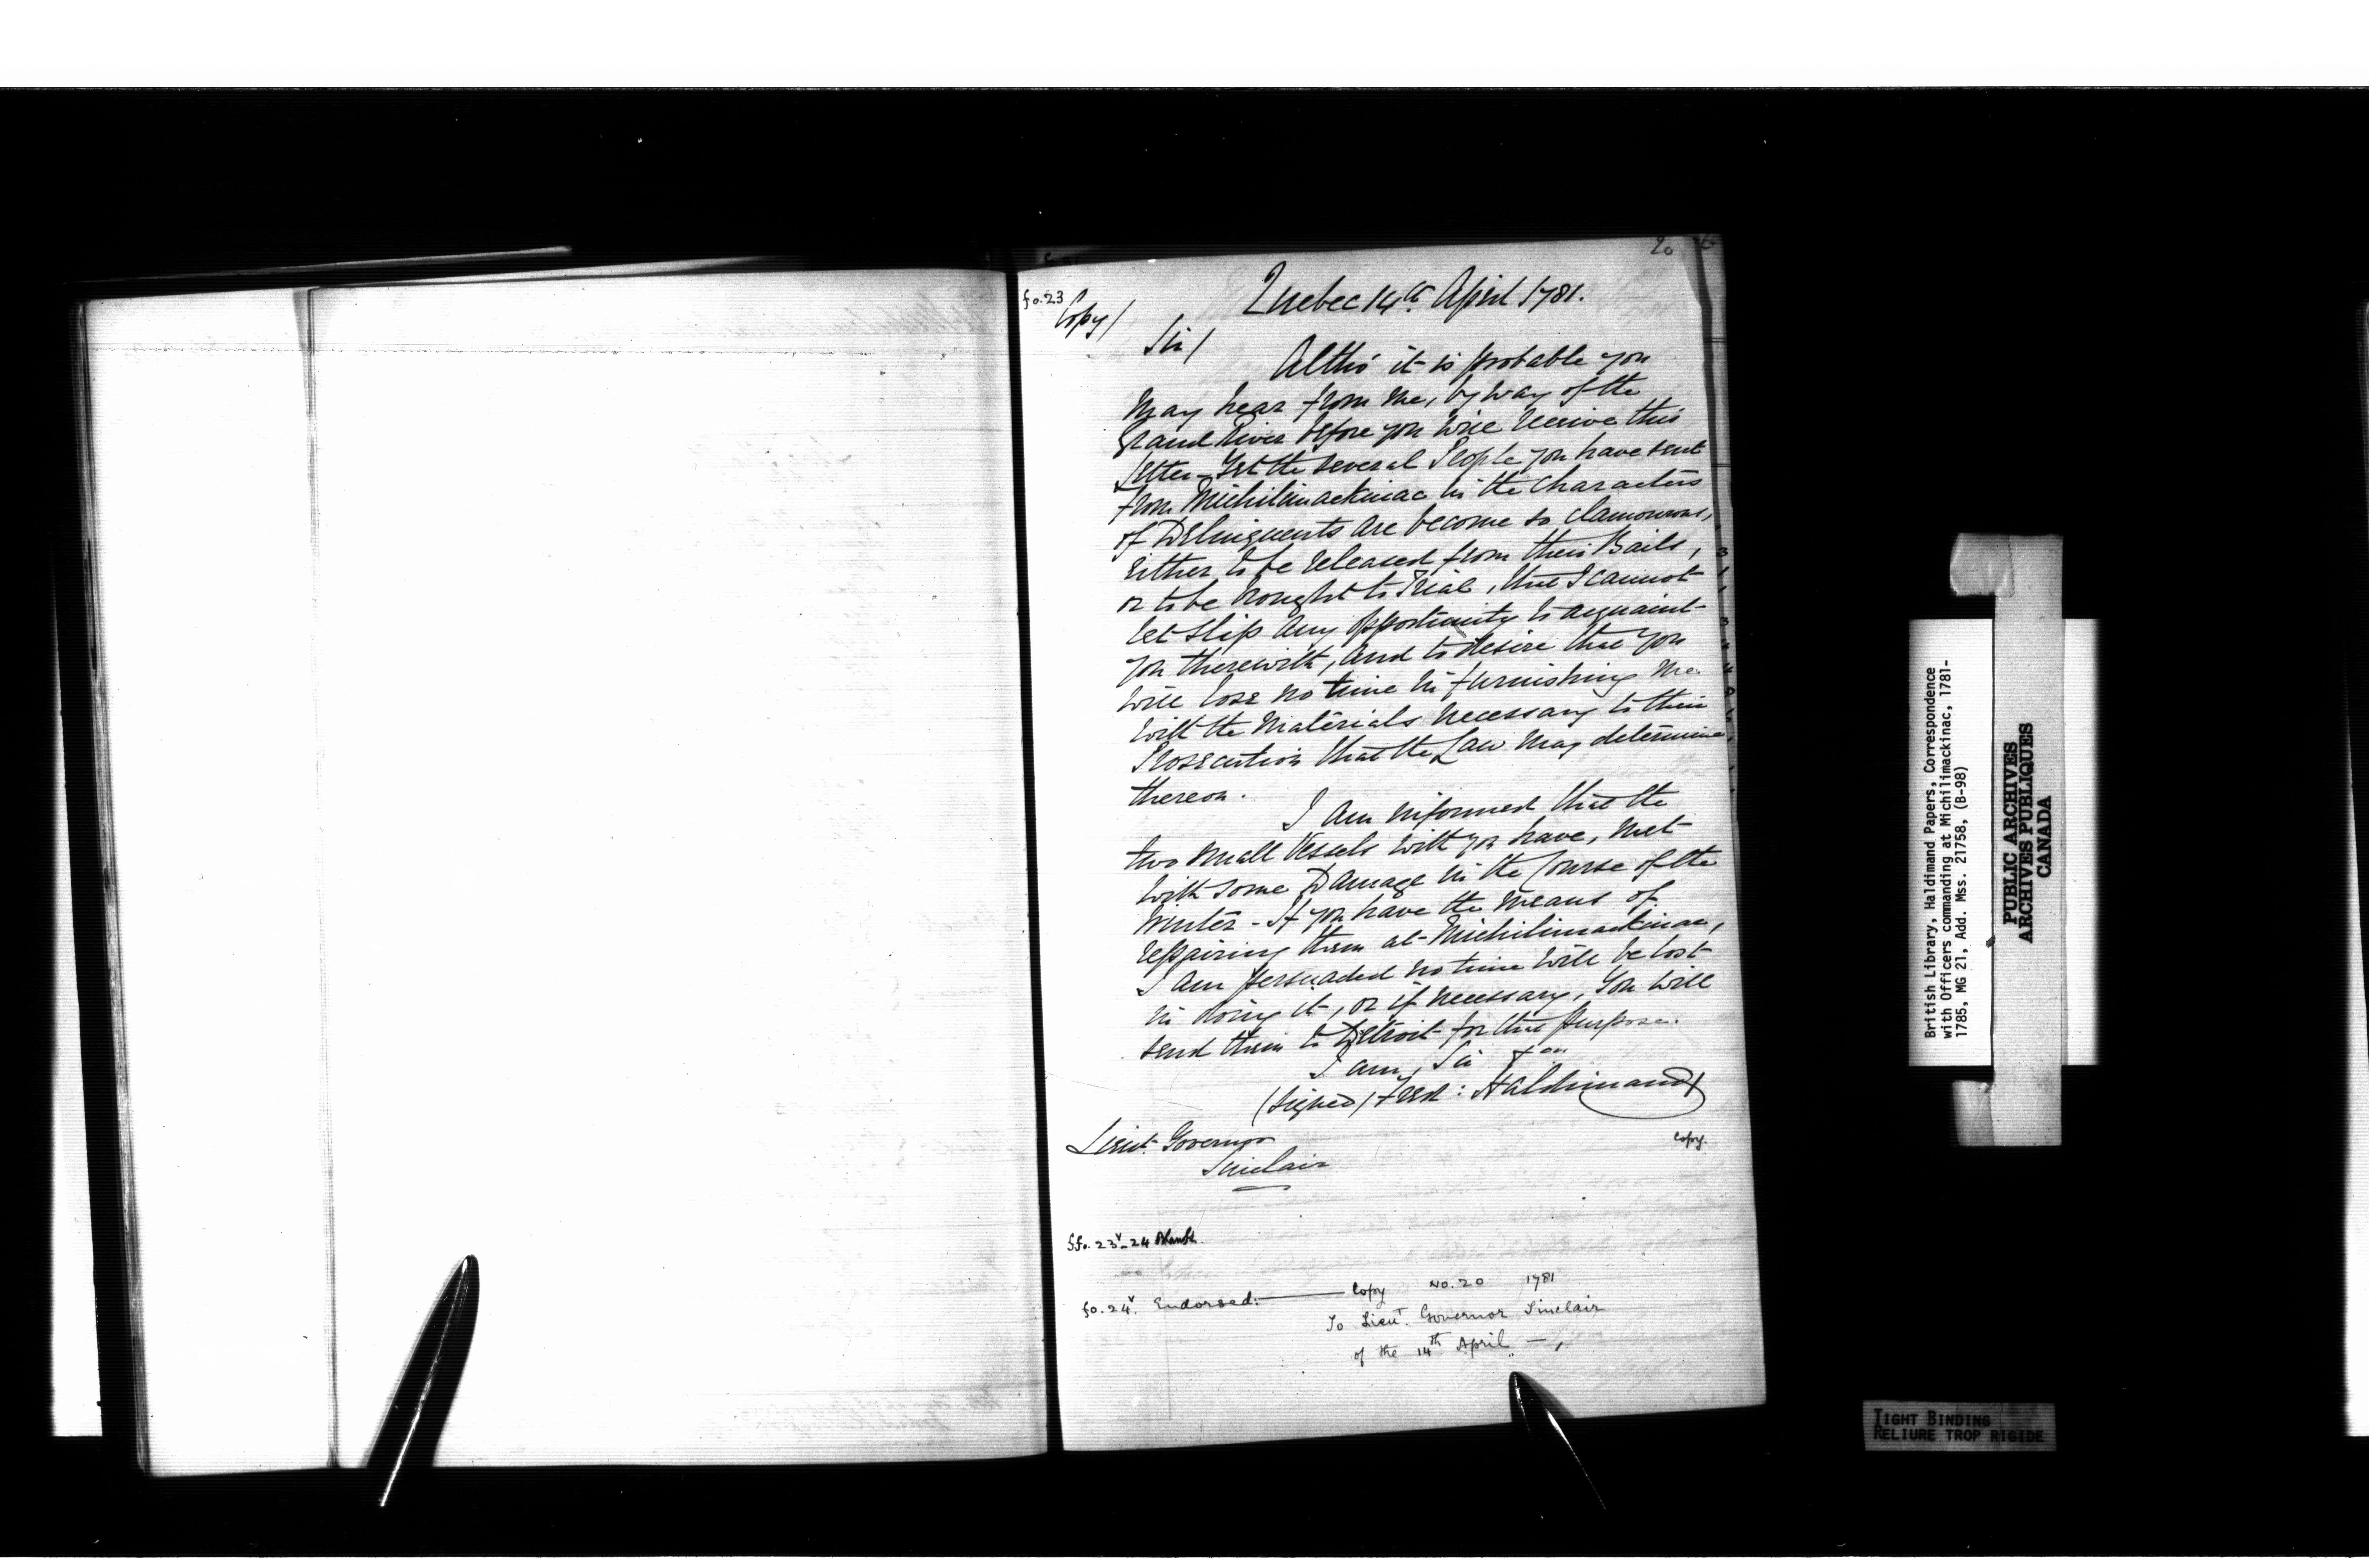 20
fo. 23
Copy/
Quebec 14th. April 1781.
Sir/
Altho' it is probable you
may hear from me, by way of the
Grand River before you will receive this
Letter - Yet the several People you have sent
from Michilimackinac in the Characters
of Delinquents are become so clamourous,
either to be released from their Bails,
or to be brought to Trial, that I cannot
let slip any opportunity to acquaint
you therewith, and to desire that you
will lose no time in furnishing me
with the Materials necessary to their
Prosecution that the Law may determine
thereon.
I am informed that the
two small Vessels with you have, met
with some Damage in the Course of the
Winter - If you have the means of
repairing them at Michilimackinac,
I am persuaded no time will be lost
in doing it, or if necessary, You will
send them to Detroit for that purpose.
I am, Sir
(signed) Fred: Haldimand
Lieut. Governor
Sinclair
Copy.
ffo. 23v-24 Blank
fo. 24v. Endorsed: Copy No. 20 1781
To Lieut. Governor Sinclair
of the 14th April —,
British Library, Haldimand Papers, Correspondence
with Officers commanding at Michilimackinac, 1781-
1785, MG 21, Add. Mss. 21758, (B-98)
PUBLIC ARCHIVES
ARCHIVES PUBLIQUES
CANADA
TIGHT BINDING
RELIURE TROP RIGIDE